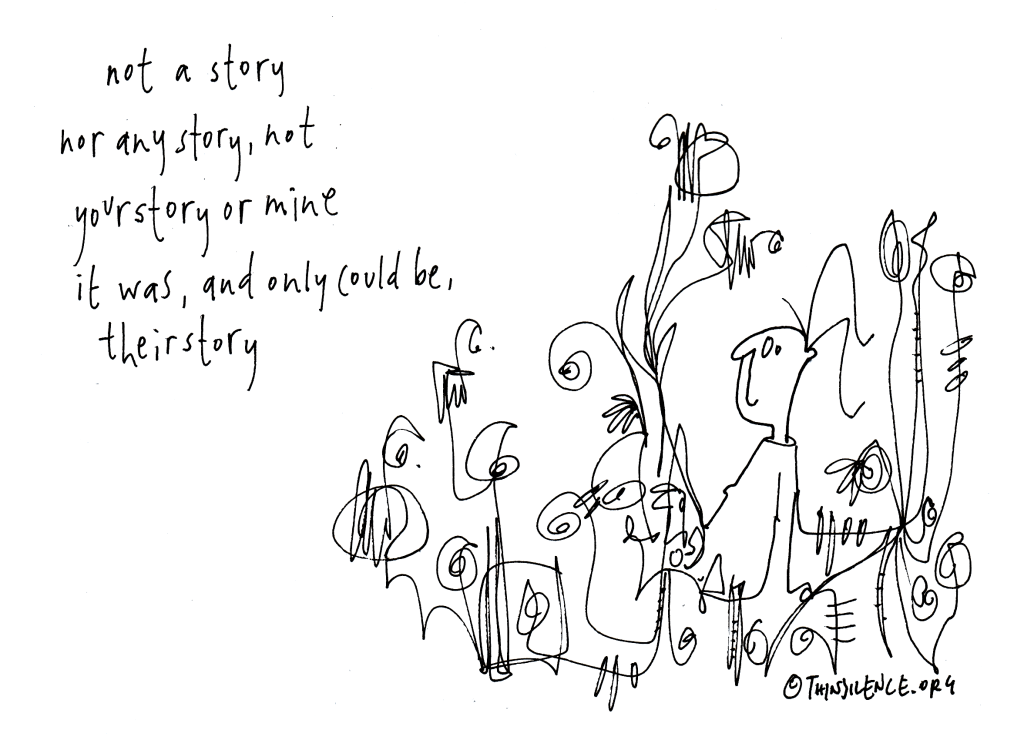 not a story
nor any story, not
yourstory or mine
it was, and only could be,
theirstory
© THINSILENCE.ORG